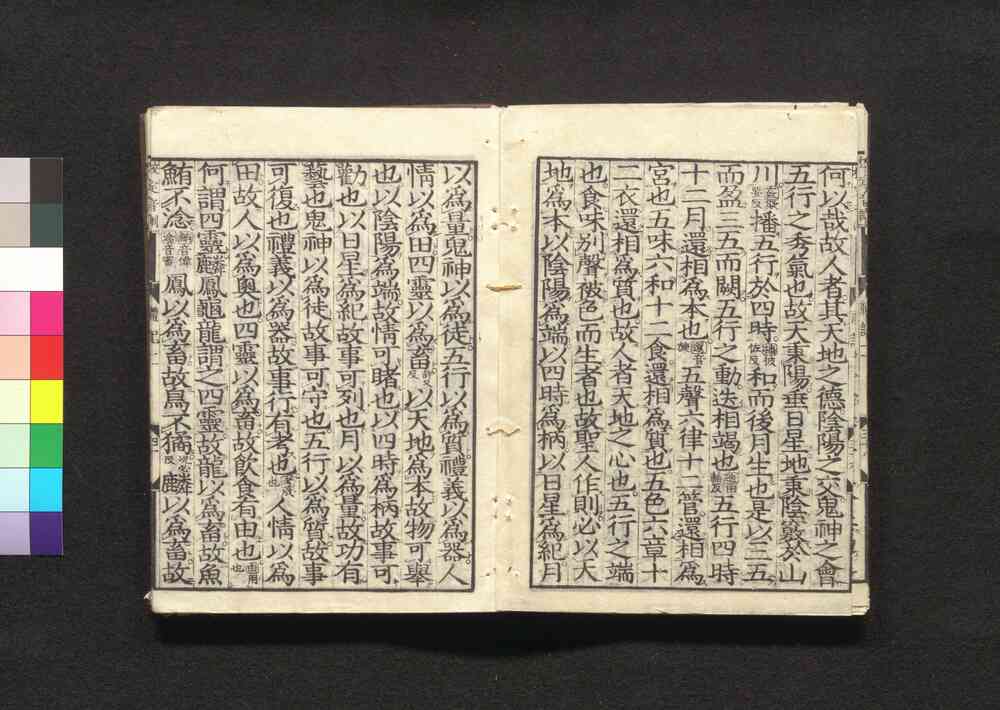 何以哉故人者其天地之德陰陽之交鬼神之會
五行之秀氣也故天秉陽垂日星地秉陰竅於山
川播五行於四時和而後月生也是以三五
而盈三五而闕五行之動迭相竭也五行四時
十二月還相爲本也五聲六律十二管還相爲
宮也五味六和十二食還相爲質也五色六章十
二衣還相爲質也故人者天地之心也五行之端
也食味別聲被色而生者也故聖人作則必以天
地爲本以陰陽爲端以四時爲柄以日星爲紀月
以爲量鬼神以爲徒五行以爲質禮義以爲器人
情以爲田四靈以爲畜以天地爲本故物可舉
也以陰陽爲端故情可睹也以四時爲柄故事可
勸也以日星爲紀故事可列也月以爲量故功有
藝也鬼神以爲徒故事可守也五行以爲質故事
可復也禮義以爲器故事行有考也人情以爲
田故人以爲奧也四靈以爲畜故飲食有由也
何謂四靈麟鳳龜龍謂之四靈故龍以爲畜故魚
鮪不淰鳳以爲畜故鳥不獝麟以爲畜故